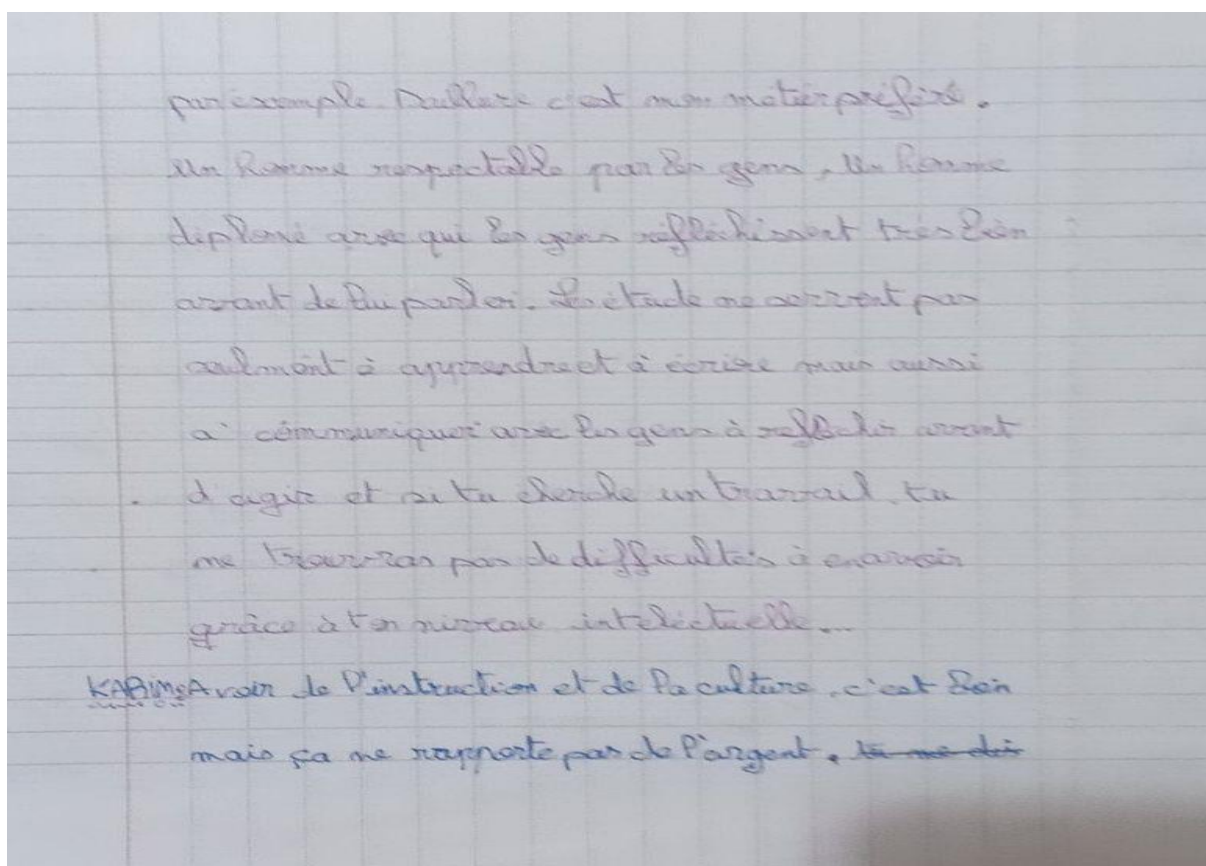 par exemple c'est mon métier préféré.
Un homme respectable par les gens, Un homme
diplomé avec qui les gens réfléchissent très bien
avant de lui parler. Les étude ne servent pas
seulment à apprendre et à écrire mais aussi
a communiquer avec les gens à refflechir avant
d'agir et si tu cherche un travail, tu
ne trouvras pas de difficultés à en avoir
grâce à ton niveau intelictuelle...
KARIM: Avoir de l'instruction et de la culture, c'est bien
mais ça ne rapporte pas de l'argent.